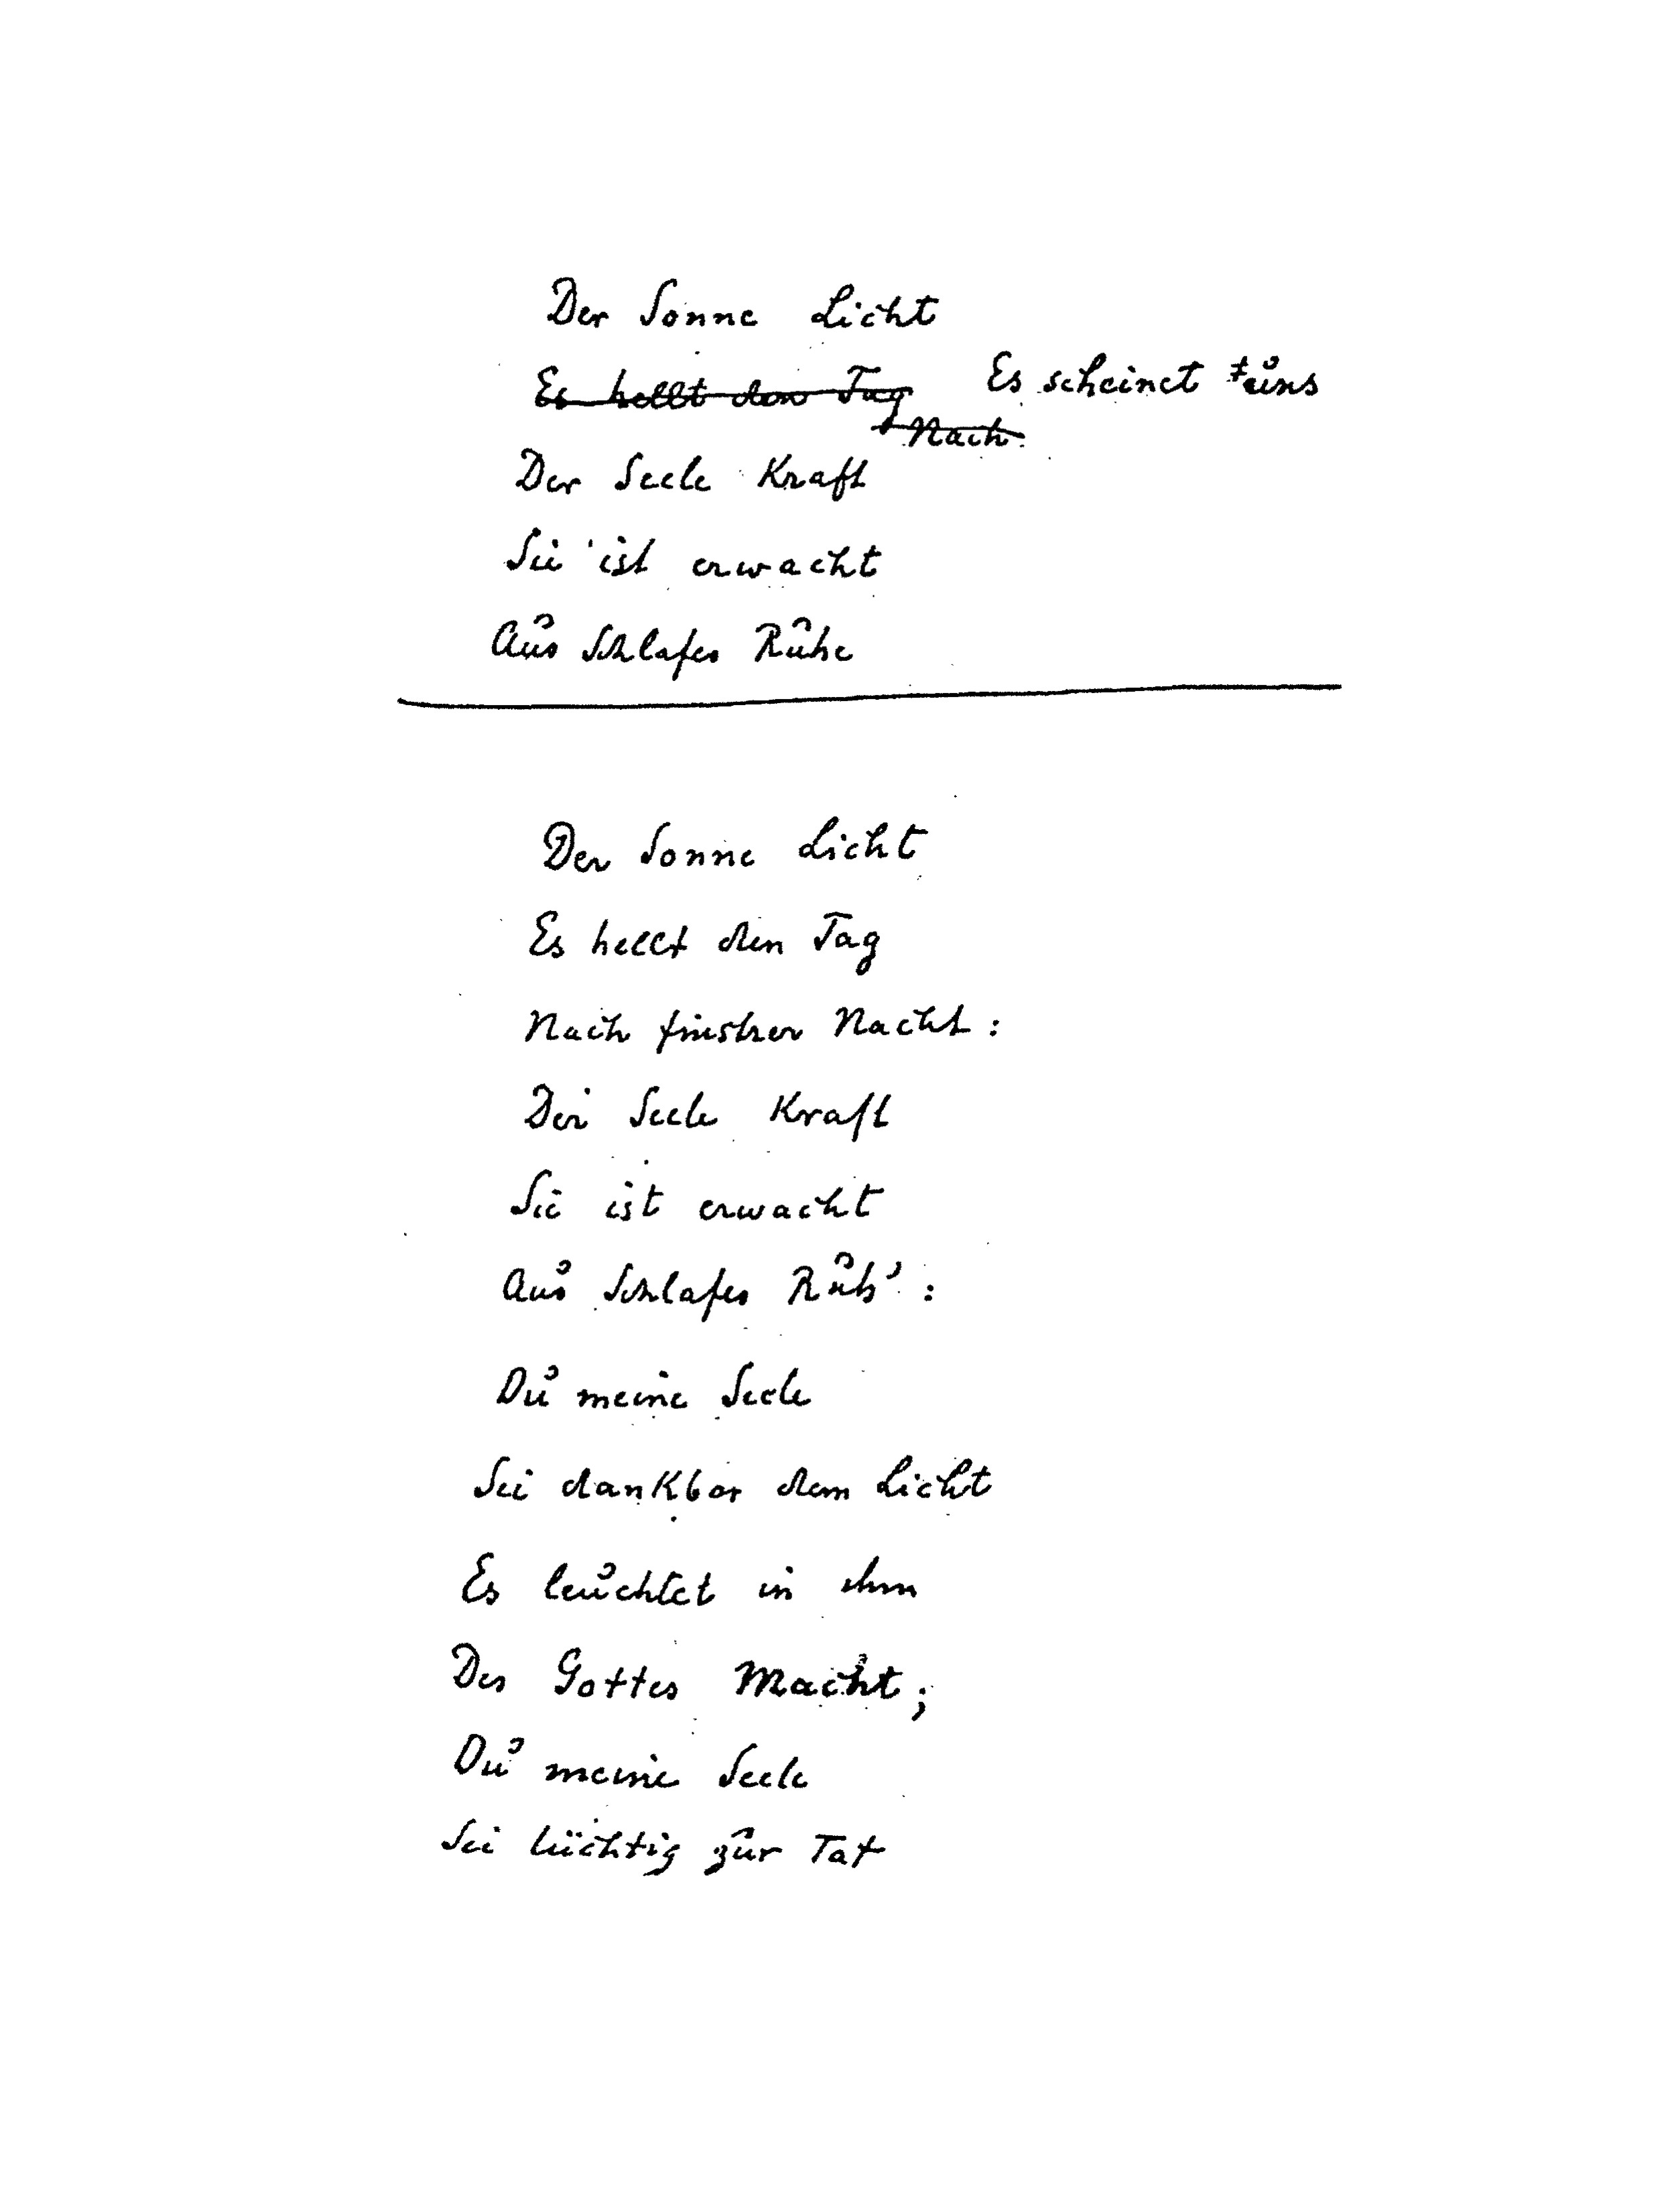 Der Sonne Licht
Es hellt den Tag Es scheinet uns
Nach
Der Seele Kraft
Sie ist erwacht
Aus Schlafes Ruhe
Der Sonne Licht
Es hellt den Tag
Nach finstrer Nacht:
Der Seele Kraft
Sie ist erwacht
Aus Schlafes Ruh':
Du meine Seele
Sei dankbar dem Licht
Es leuchtet in ihm
Des Gottes Macht;
Du meine Seele
Sei tüchtig zur Tat